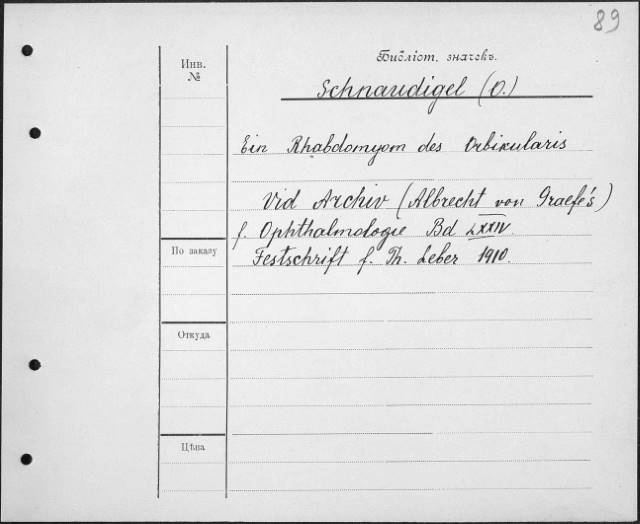 89
Библіот. значекъ.
Инв.
№
Schnaudigel (O.)
Ein Rhabdomyom des Orbikularis
Vid Archiv (Albrecht von Graefe's)
f. Ophthalmologie Bd LXXIV
По заказу
Festschrift f. Th. Leber 1910.
Откуда
Цѣна